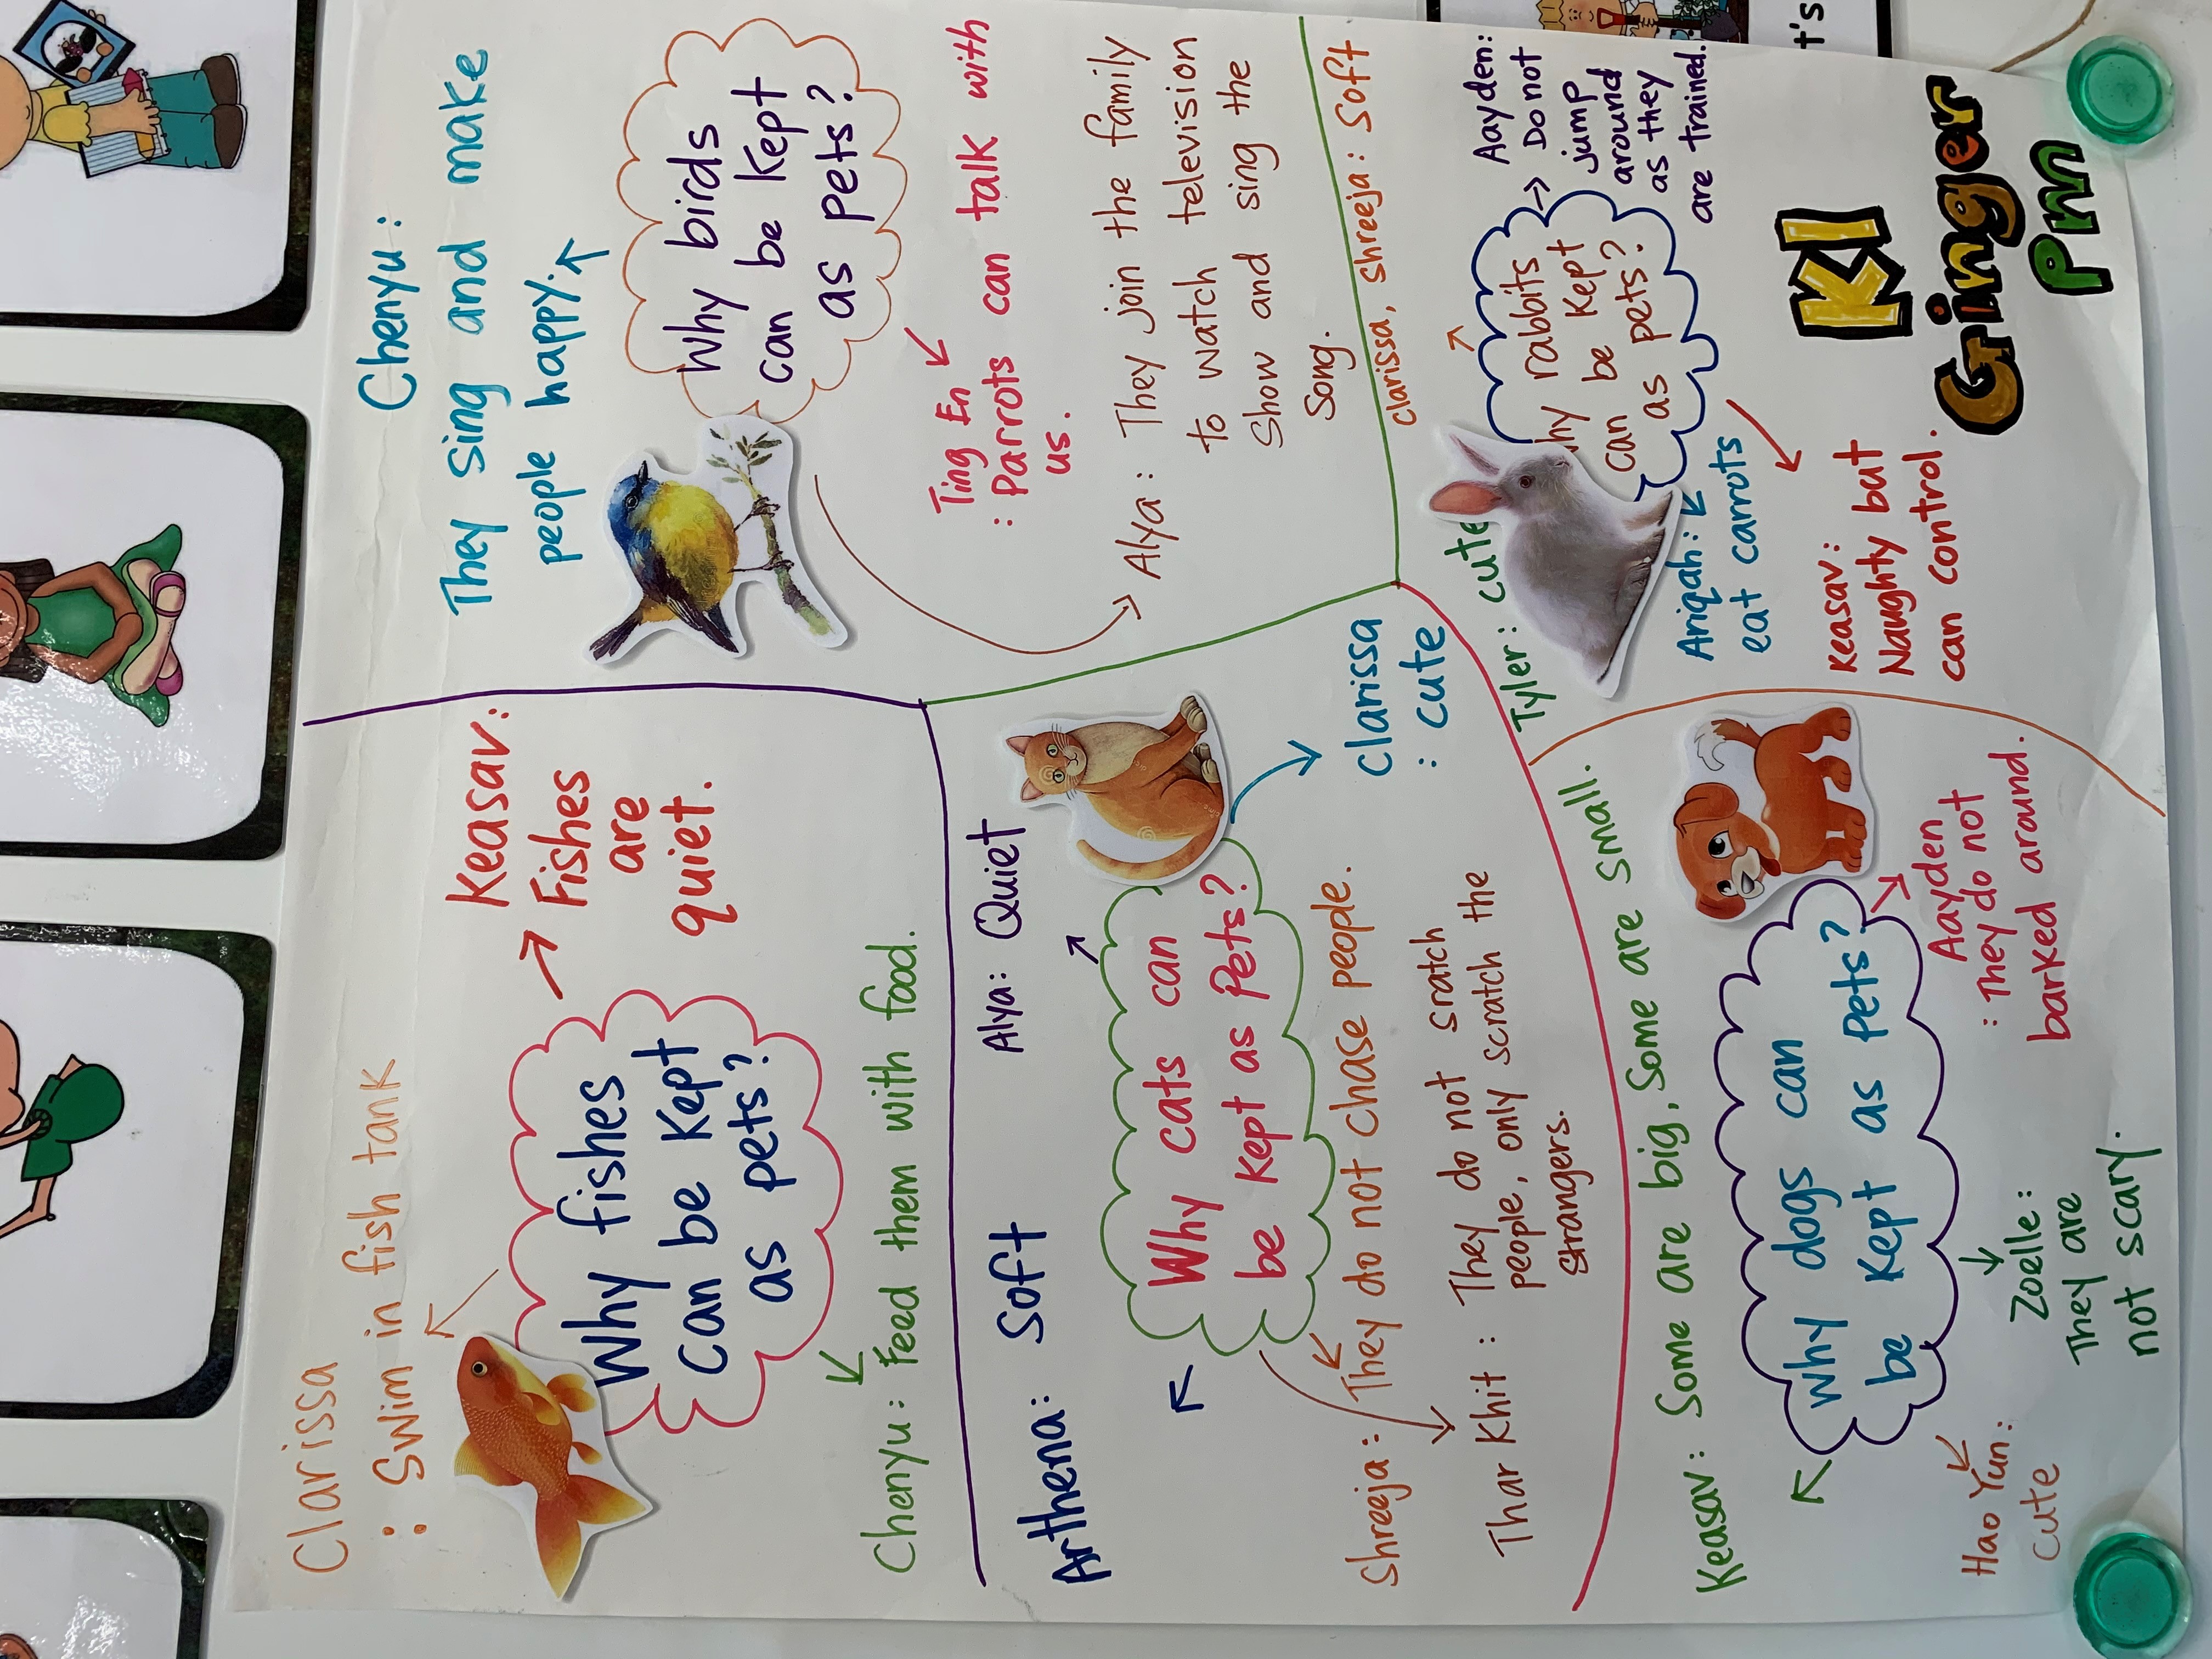 Clarissa
: Swim in fish tank
Keasav:
Fishes
are
quiet.
Why fishes
can be kept
as pets?
Chenyu: Feed them with food.
Chenyu:
They sing and make
people happy.
Why birds
can be kept
as pets?
Ting En
: Parrots can talk with
us.
Alya: They join the family
to watch television
show and sing the
song.
Arthena: Soft
Alya: Quiet
Why cats can
be kept as Pets?
Shreeja: They do not chase people.
Clarissa
: cute
Thar Khit: They do not sratch
people, only scratch the
strangers.
Clarissa, Shreeja: Soft
Tyler: cute
hy rabbits
can be kept
as pets?
Aayden:
Do not
jump
around
as they
are trained.
Ariqah:
eat carrots
Keasav:
Naughty but
can control.
Keasav: Some are big, Some are small.
why dogs can
be kept as pets?
Hao Yun:
cute
Zoelle:
They are
not scary.
Aayden
: They do not
barked around.
K1
Ginger
Pm
t's